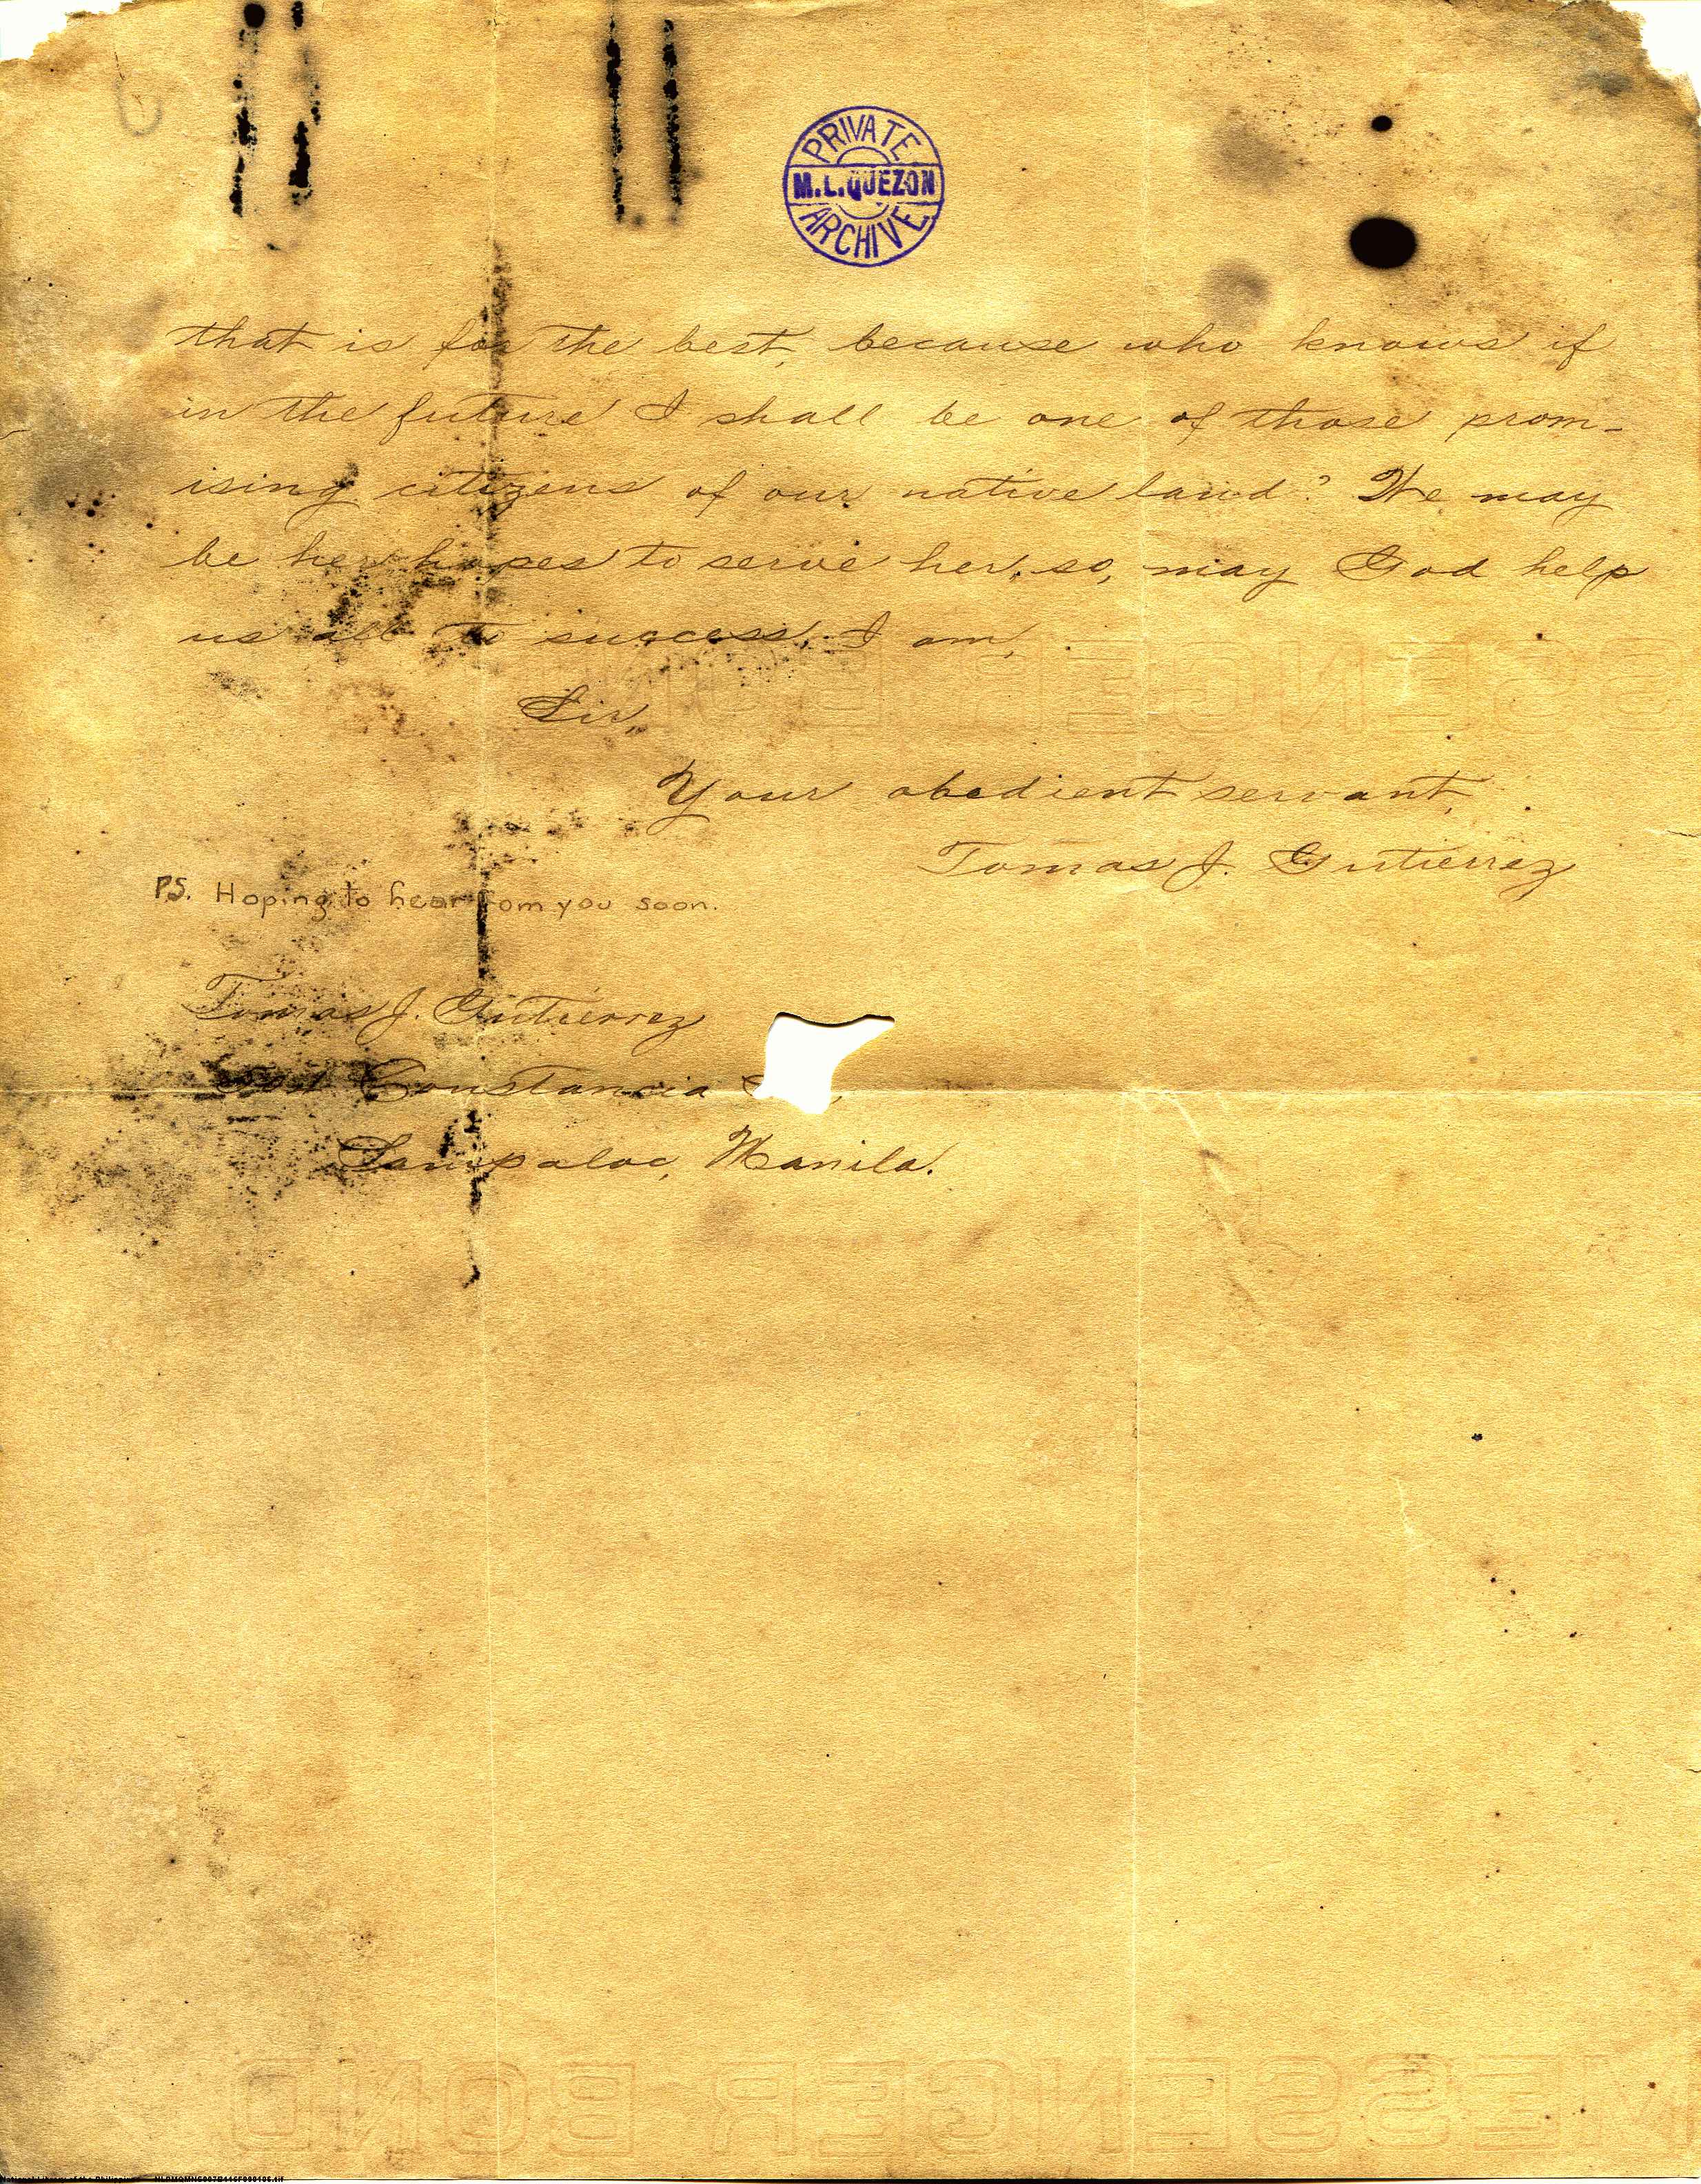 PRIVATE
M.L.QUEZON
ARCHIVE
that is for the best, because who knows if
in the future I shall be one of those prom-
ising citizens of our native land? We may
be her hopes to serve her, so, may God help
us all to success, I am,
Sir,
Your obedient servant,
Tomas J. Gutierrez
PS. Hoping to hear from you soon.
Tomas J. Gutierrez
Constancia
Sampaloc, Manila.
MESSENGER BOND